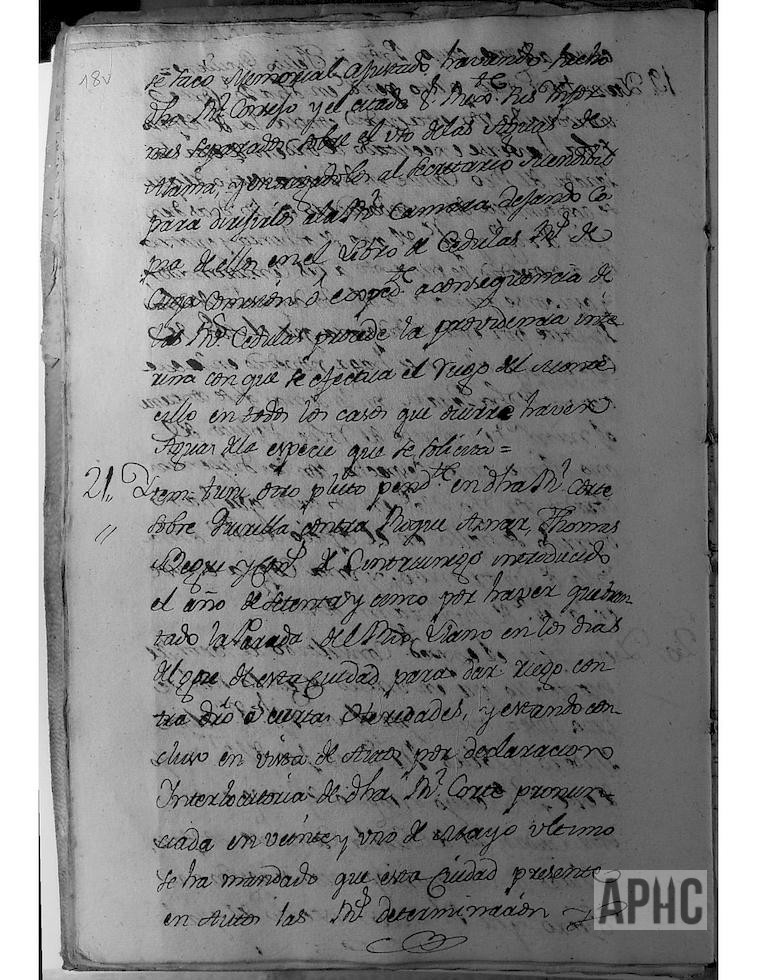 18v
se saco Memorial Ajustado, haviendo hecho
dho Rl. Consejo y el citado
sus separados sobre el uso de las Aguas de
Alama, y encargadoles al Secretario
para dirijirlos a la Rl. Camara dejando Co-
pia de ellos en el Libro de Cedulas Rs. de
Cuya Comision ô exped.te a consequencia de
las Rs. Cedulas procede la providencia inte-
rina con que se efectua el riego del Monte-
cillo en todos los casos que ocurre haver
Aguas de la especie que se solicita =
21,, Ytem tiene otro pleito pend.te en dha Rl. Corte
" sobre Querella contra Roque Aznar, Thomas
y de Cintruenigo introducido
el año de setenta y cinco por haver quebran-
tado la Parada del Rio Llano en los dias
del que de esta Ciudad para dar riego con-
tra dro â ciertas Heredades, y estando con-
cluso en vista de Autos por declaracion
Interlocutoria de dha Rl. Corte pronun-
ciada en veinte y uno de Mayo ultimo
se ha mandado que esta Ciudad presente
en Autos las Rs. determinacion
APHC